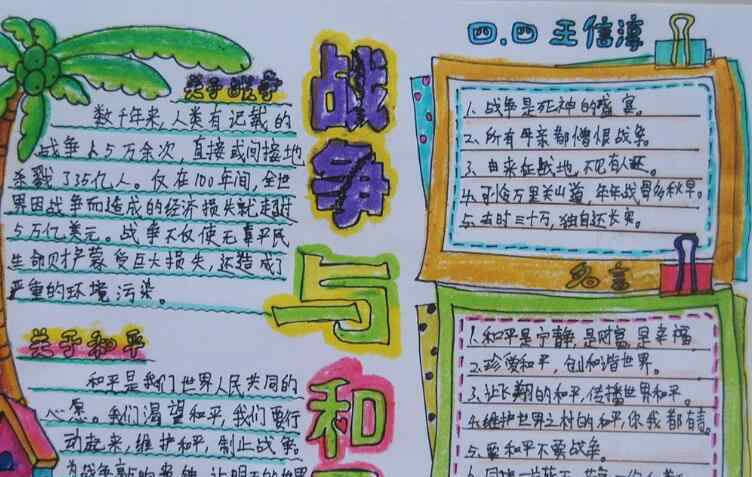 四.四 王信淳
战争与和
关于战争
数千年来,人类有记载的
战争上5万余次,直接或间接地
杀戮了35亿人。仅在100年间,全世
界因战争而造成的经济损失就超过
5万亿美元。战争不仅使无辜平民
生命财产蒙受巨大损失,还造成了
严重的环境污染。
关于和平
和平是我们世界人民共同的
心愿。我们渴望和平,我们要行
动起来,维护和平,制止战争。
1.战争是死神的盛宴。
2.所有母亲都憎恨战争。
3.由来征战地,不见有人还。
4.可怜万里关山道,年年战骨多秋草。
5.去时三十万,独自还长安。
名言
1.和平是宁静,是财富,是幸福
2.珍爱和平,创和谐世界。
3.让飞翔的和平,传播世界和平。
4.维护世界之村的和平,你我都有责。
5.要和平不要战争。